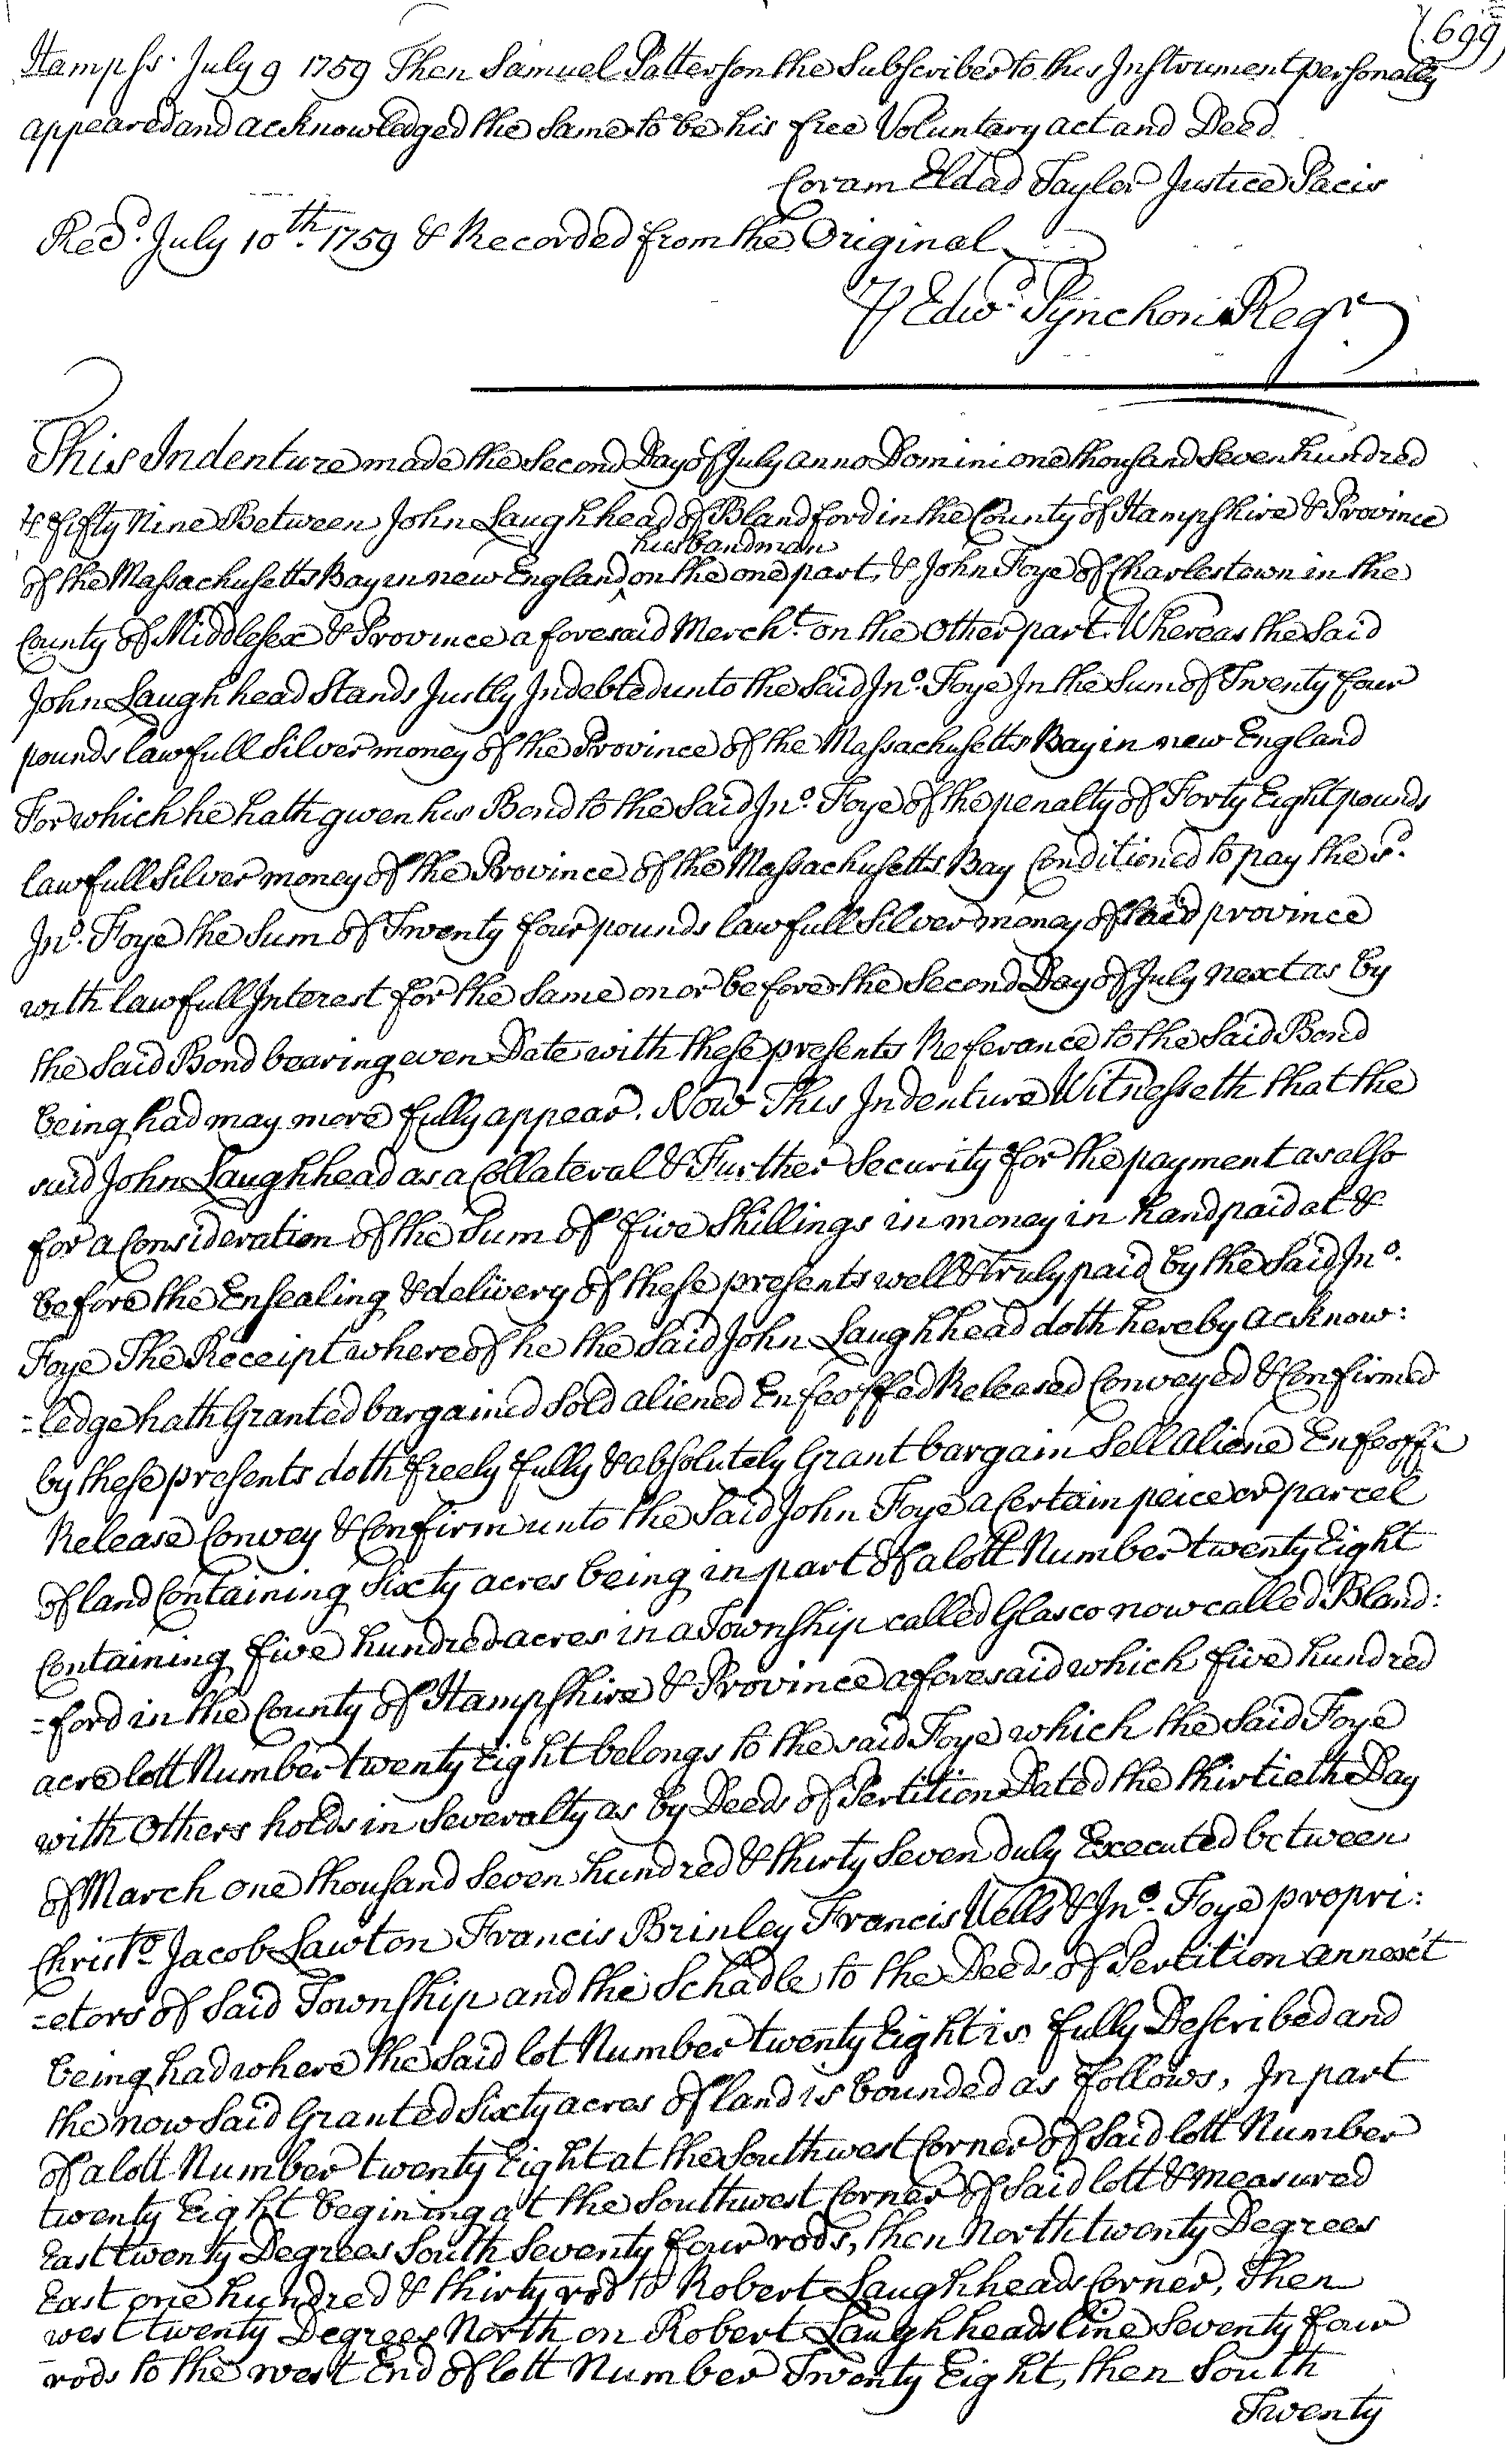 (699)
Hampss. July 9 1759 Then Samuel Patterson the Subscriber to this Instrument personally
appeared and acknowledged the Same to be his free Voluntary act and Deed
Coram Eldad Taylor Justice Pacis
Recd. July 10th. 1759 & Recorded from the Original
Edwd. Pynchon Regr.
This Indenture made the Second Day of July anno Domini one thousand Seven hundred
& fifty Nine Between John Laughhead of Blandford in the County of Hampshire & Province
husbandman
of the Massachusetts Bay in new England ‸ on the one part, & John Foye of Charlestown in the
County of Middlesex & Province aforesaid Mercht. on the Other part. Whereas the Said
John Laughhead Stands Justly Indebted unto the Said Jno. Foye In the Sum of Twenty four
pounds lawfull Silver money of the Province of the Massachusetts Bay in new England
For which he hath given his Bond to the Said Jno. Foye of the penalty of Forty Eight pounds
lawfull Silver money of the Province of the Massachusetts Bay Conditioned to pay the sd.
Jno. Foye the Sum of Twenty four pounds lawfull Silver money of said province
with lawfull Interest for the Same on or before the Second Day of July next as by
the Said Bond bearing even Date with these presents Referance to the Said Bond
being had may more fully appear. Now This Indenture Witnesseth that the
said John Laughhead as a Collateral & Further Security for the payment as also
for a Consideration of the Sum of five Shillings in money in hand paid at &
before the Ensealing & delivery of these presents well & truly paid by the Said Jno.
Foye The Receipt whereof he the Said John Laughhead doth hereby acknow:
=ledge hath Granted bargained Sold aliened Enfeoffed Released Conveyed & Confirmed
by these presents doth freely fully & absolutely Grant bargain Sell Aliene Enfeoffe
Release Convey & Confirm unto the Said John Foye a Certain peice or parcel
of land Containing Sixty acres being in part of a lott Number twenty Eight
Containing five hundred acres in a Township called Glasco now called Bland:
=ford in the County of Hampshire & Province aforesaid which five hundred
acre lott Number twenty Eight belongs to the said Foye which the Said Foye
with Others holds in Severalty as by Deeds of Pertition Dated the thirtieth Day
of March one thousand Seven hundred & thirty Seven duly Executed between
Christo. Jacob Lawton Francis Brinley Francis Wells & Jno. Foye propri:
=etors of Said Township and the Schadle to the Deeds of Pertition annex't
being had where the Said lot Number twenty Eight is fully Described and
the now Said Granted Sixty acres of land is bounded as follows, In part
of a lott Number twenty Eight at the Southwest Corner of Said lott Number
twenty Eight begining at the Southwest Corner of Said lott & measured
East twenty Degrees South Seventy four rods, then North twenty Degrees
East one hundred & thirty rod to Robert Laughheads Corner, Then
west twenty Degrees North on Robert Laughheads line Seventy four
rods to the west End of lott Number Twenty Eight, then South
Twenty